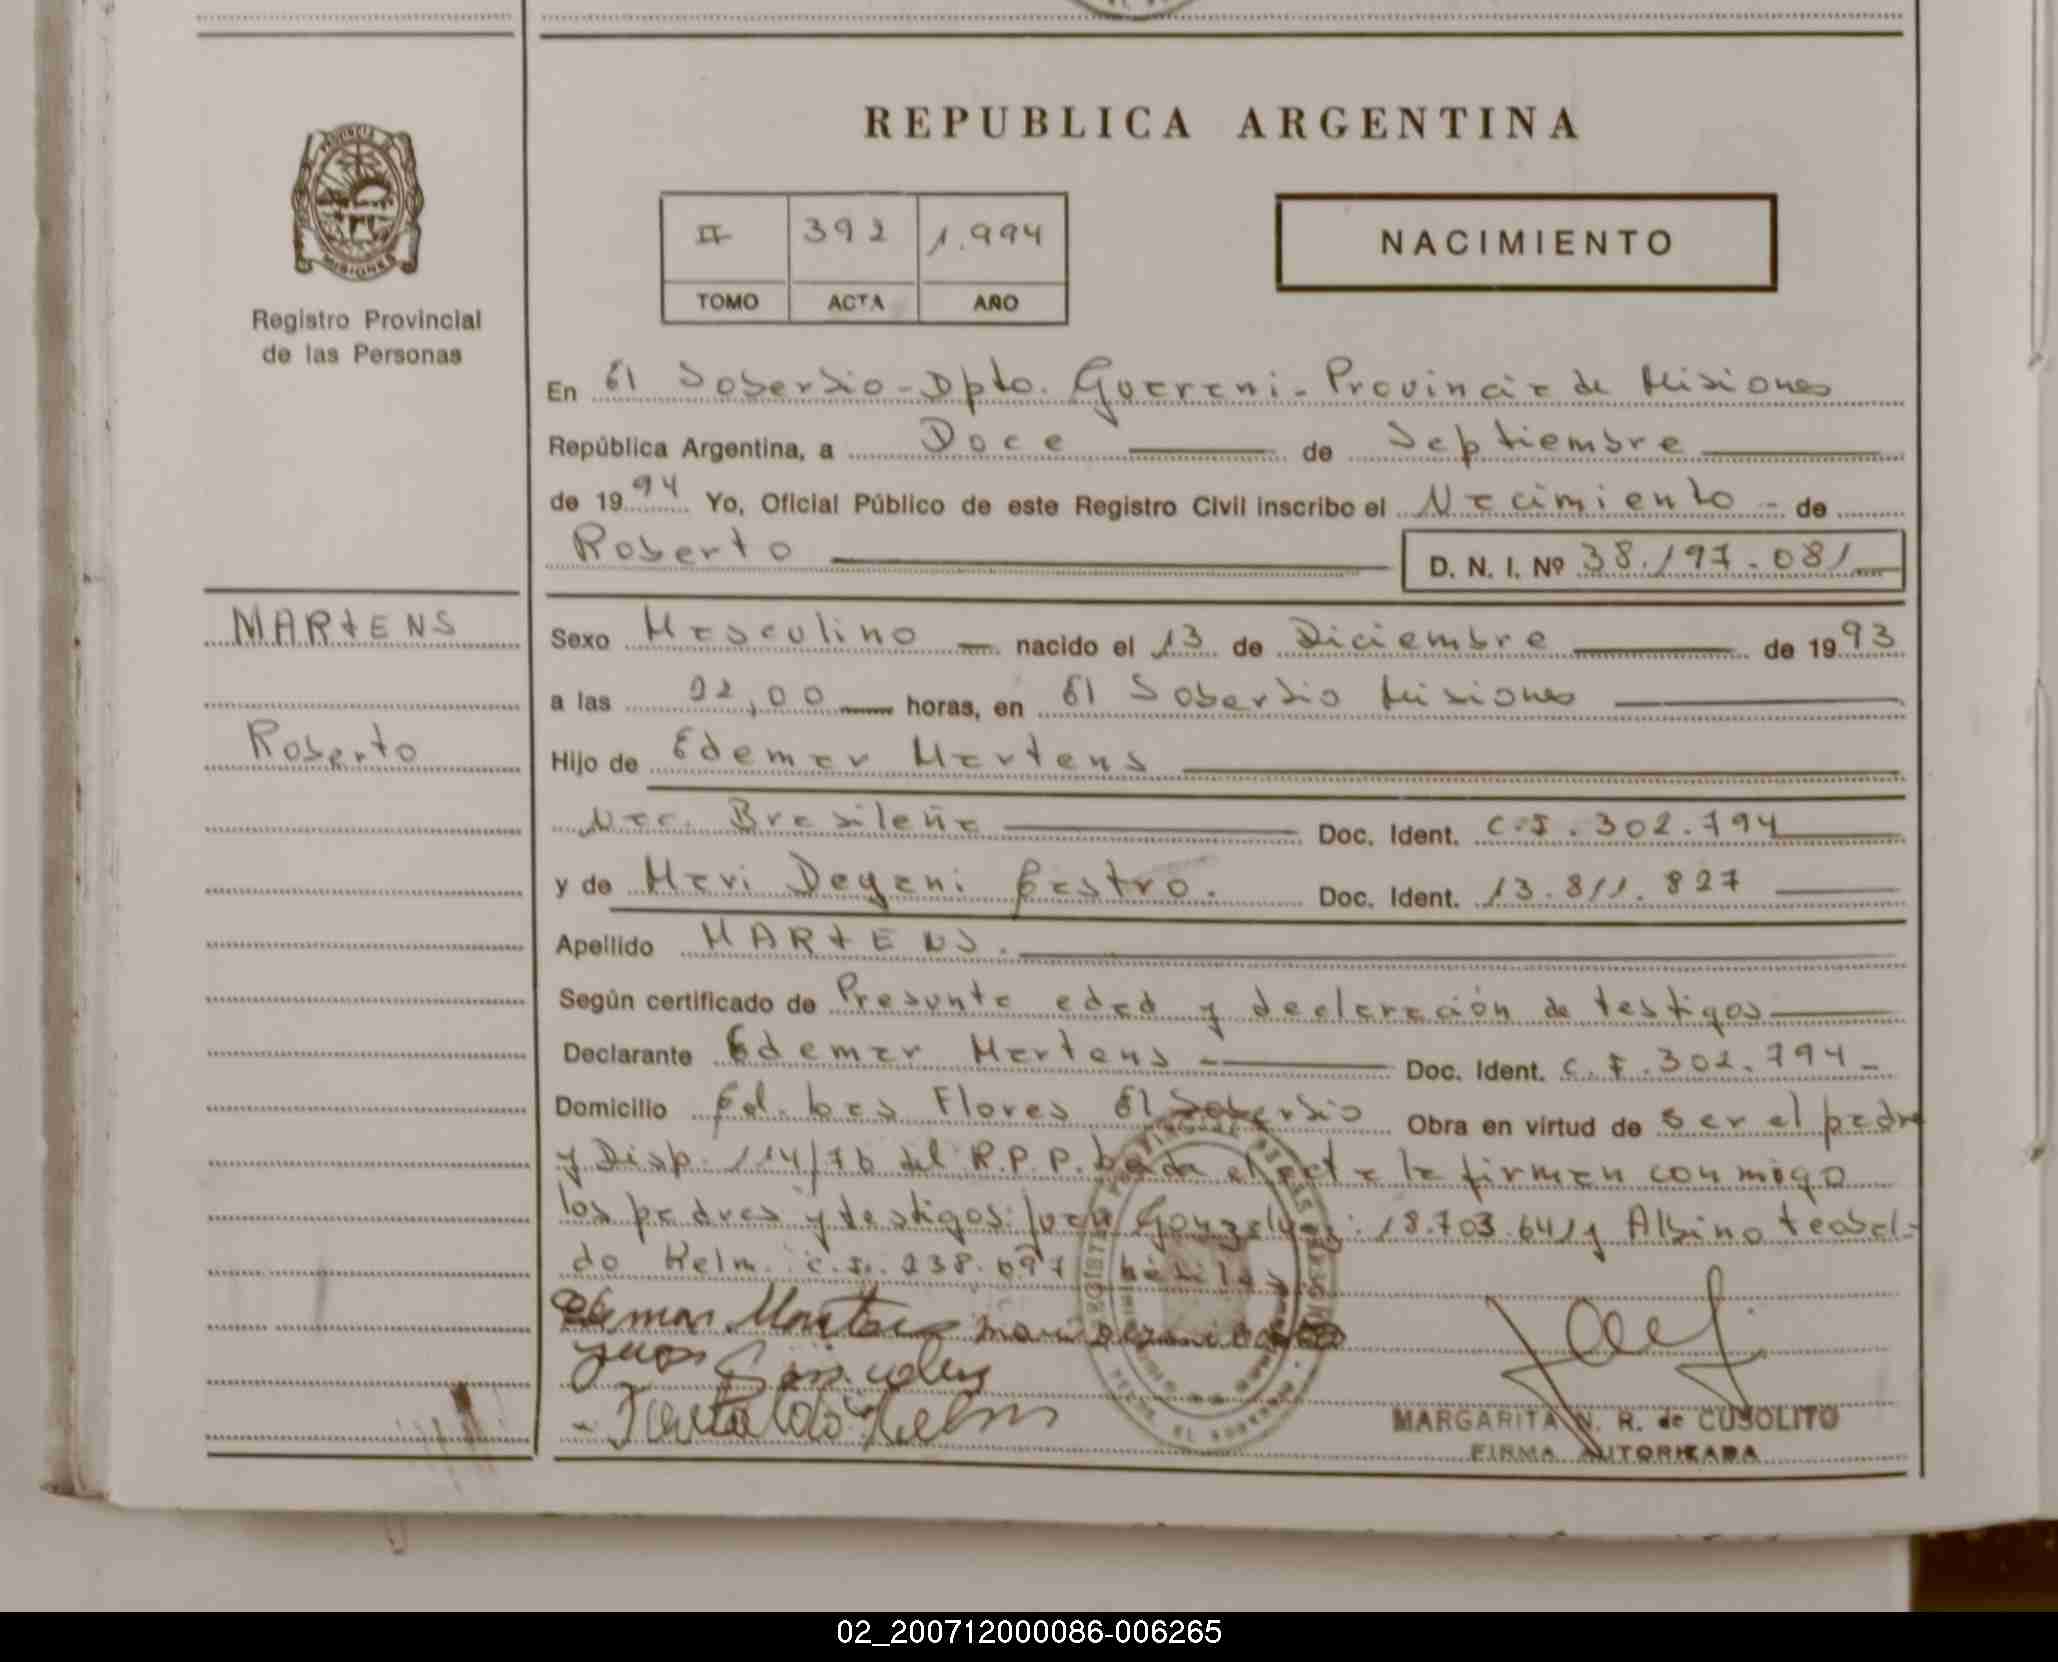 REPUBLICA ARGENTINA
PROVINCIA DE MISIONES
Registro Provincial
de las Personas
II 392 1.994
TOMO ACTA AÑO
NACIMIENTO
En El Soberbio - Dpto. Guarani - Provincia de Misiones
República Argentina, a Doce de Septiembre
de 1994 Yo, Oficial Público de este Registro Civil inscribo el Nacimiento - de
Roberto D. N. I. Nº 38.197.081
MARTENS
Roberto
Sexo Masculino nacido el 13 de Diciembre de 1993
a las 22,00 horas, en El Soberbio Misiones
Hijo de Edemar Martens
Nac. Brasileña Doc. Ident. C.I. 302.794
y de Mari Degani Castro. Doc. Ident. 13.811.827
Apellido MARTENS.
Según certificado de Presunta edad y declaración de testigos
Declarante Edemar Martens Doc. Ident. C.I. 302.794-
Domicilio Col. Las Flores El Soberbio Obra en virtud de Ser el padre
y Disp. 114/76 del R.P.P. Leída el acta la firman conmigo
los padres y testigos: Juan Gonzalvez: 18.703.641 y Albino teobal-
do Helm. C.I. 238.697
Edemar Martens
Juan
Helm
MARGARITA N. R. de CUSOLITO
FIRMA AUTORIZADA
02_200712000086-006265